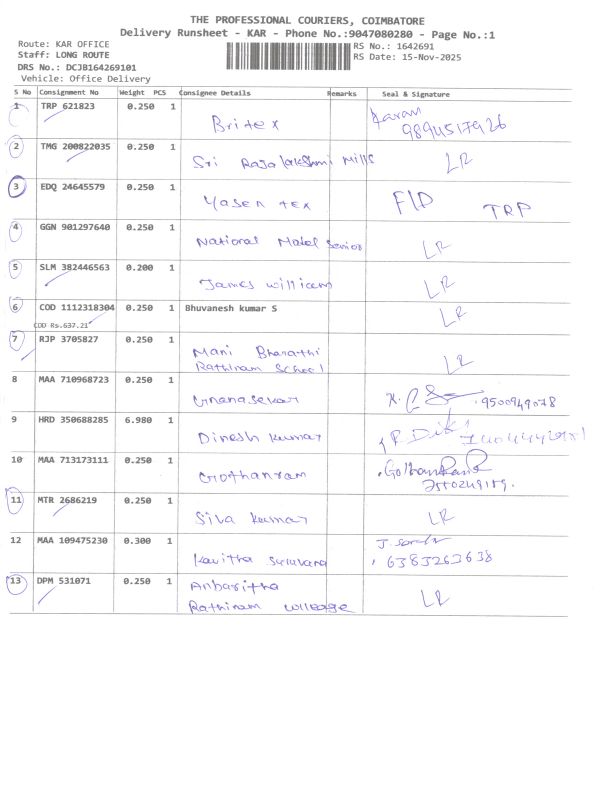 THE PROFESSIONAL COURIERS, COIMBATORE
Delivery Runsheet - KAR - Phone No.:9047080280 - Page No.:1
Route: KAR OFFICE
RS No.: 1642691
Staff: LONG ROUTE
RS Date: 15-Nov-2025
DRS No.: DCJB164269101
Vehicle: Office Delivery
S No Consignment No Weight PCS Consignee Details Remarks Seal & Signature
1 TRP 621823 0.250 1 Britex Karan 9894517926
2 TMG 200822035 0.250 1 Sri Rajalakshmi Mills LR
3 EDQ 24645579 0.250 1 Yasen tex F/D TRP
4 GGN 901297640 0.250 1 National Matel LR
5 SLM 382446563 0.200 1 James william LR
6 COD 1112318304 0.250 1 Bhuvanesh kumar S LR
COD Rs.637.21
7 RJP 3705827 0.250 1 Mani Bharathi LR
Rathinam School
8 MAA 710968723 0.250 1 Gnanasekar 9500949078
9 HRD 350688285 6.980 1 Dinesh kumar
10 MAA 713173111 0.250 1 Gothanram
11 MTR 2686219 0.250 1 Siva kumar LR
12 MAA 109475230 0.300 1 Kavitha 6383263638
13 DPM 531071 0.250 1 Anbaritha LR
Rathinam